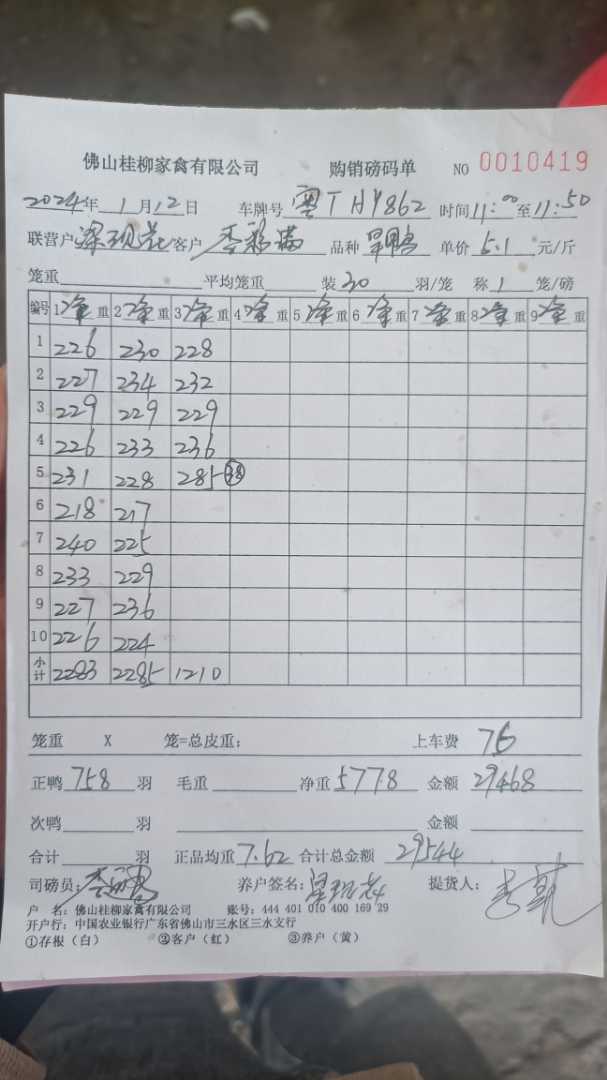 佛山桂柳家禽有限公司 购销磅码单 NO 0010419
2024年 1月12日 车牌号 粤THY862 时间11:00至11:50
联营户 梁现花 客户 李彩满 品种 旱鸭 单价 5.1 元/斤
笼重 平均笼重 装 20 羽/笼 称 1 笼/磅
编号 1净重 2净重 3净重 4净重 5净重 6净重 7净重 8净重 9净重
1 226 230 228
2 227 234 232
3 229 229 229
4 226 233 236
5 231 228 285 38
6 218 217
7 240 225
8 233 229
9 227 236
10 226 224
小计 2283 2285 1210
笼重 X 笼=总皮重: 上车费 76
正鸭 758 羽 毛重 净重 5778 金额 29468
次鸭 羽 金额
合计 羽 正品均重 7.62 合计总金额 29544
司磅员: 养户签名: 梁现花 提货人:
户 名: 佛山桂柳家禽有限公司 账号: 444 401 010 400 169 29
开户行: 中国农业银行广东省佛山市三水区三水支行
①存根(白) ②客户(红) ③养户(黄)